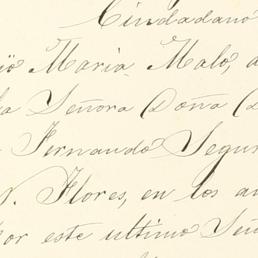 Ciudadano
Maria Malo, a
la Señora Doña
Fernando Segur
N. Flores, en los au
por este ultimo Señ